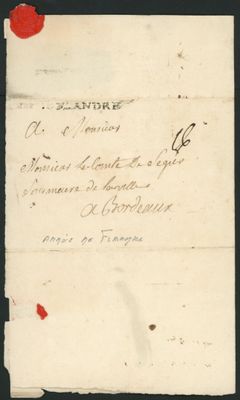 FLANDRE
A Monsieur
Monsieur le Comte De Segur
Sousmaire de la ville
a Bordeaux
ARMÉE DE FLANDRE